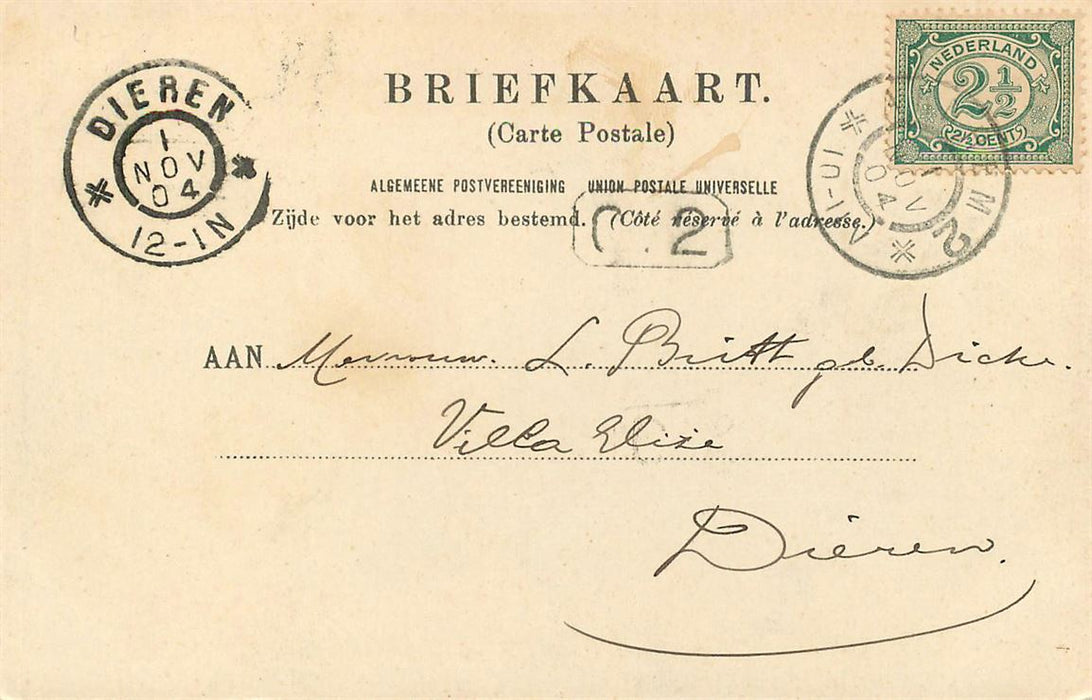 BRIEFKAART.
(Carte Postale)
ALGEMEENE POSTVEREENIGING UNION POSTALE UNIVERSELLE
Zijde voor het adres bestemd. (Côté réservé à l'adresse.)
DIEREN
1
NOV
04
12-1N
NEDERLAND
2 1/2
2½ CENT
M 2
NOV
04
2
AAN Mevrouw. L. Britt gb. Dicke.
Villa Elize
Dieren.